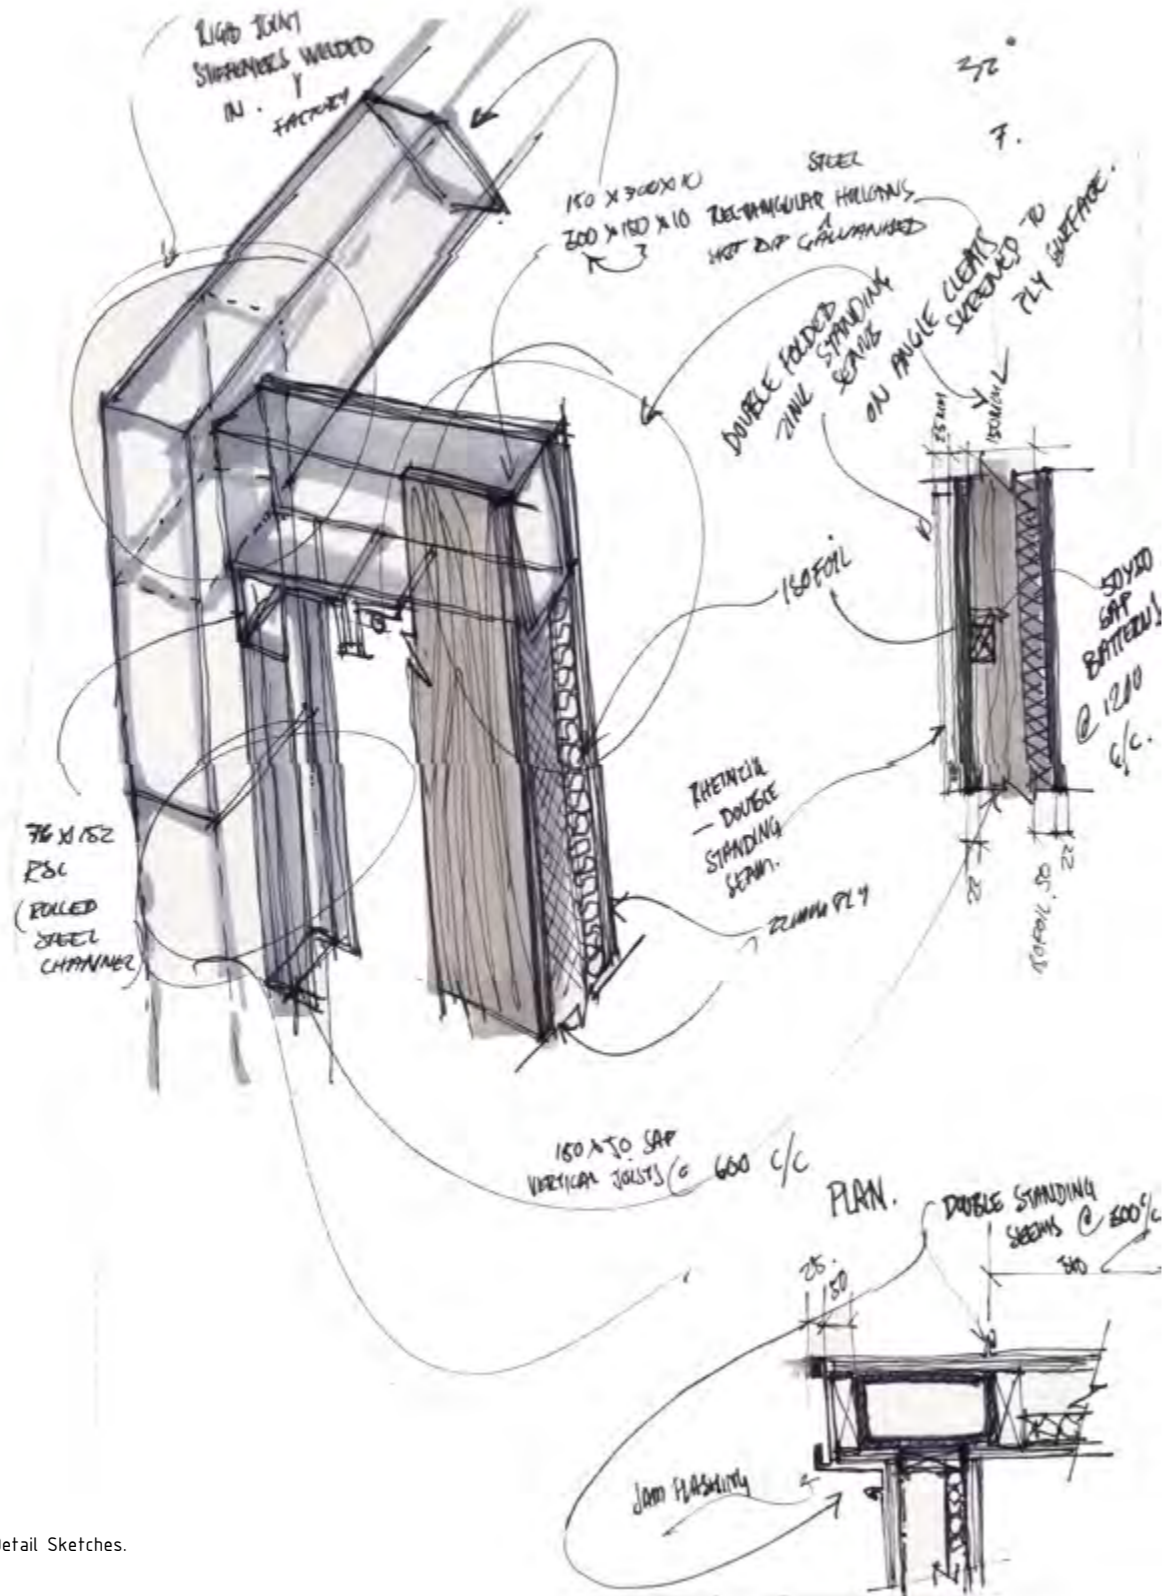 RIGID JOINT
STIFFENERS WELDED
IN
FACTORY
32°
7.
STEEL
150 X 300 X 10
300 X 150 X 10 RECTANGULAR
HOT DIP GALVANISED
DOUBLE FOLDED
ZINK STANDING
SEAMS
ON ANGLE CLEATS
SCREENED TO
PLY SURFACE.
ISOFOIL
50X50
SAP
BATTENS
@ 1200
C/C.
RHEINZINK
— DOUBLE
STANDING
SEAM.
22mm PLY
22
ISOFOIL. 25
22
76 X 152
RSC
(ROLLED
STEEL
CHANNEL
150 X 50 SAP
VERTICAL JOISTS @ 600 C/C
PLAN.
DOUBLE STANDING
SEEMS @ 300 C/C
25.
150
JAM FLASHING
Detail Sketches.